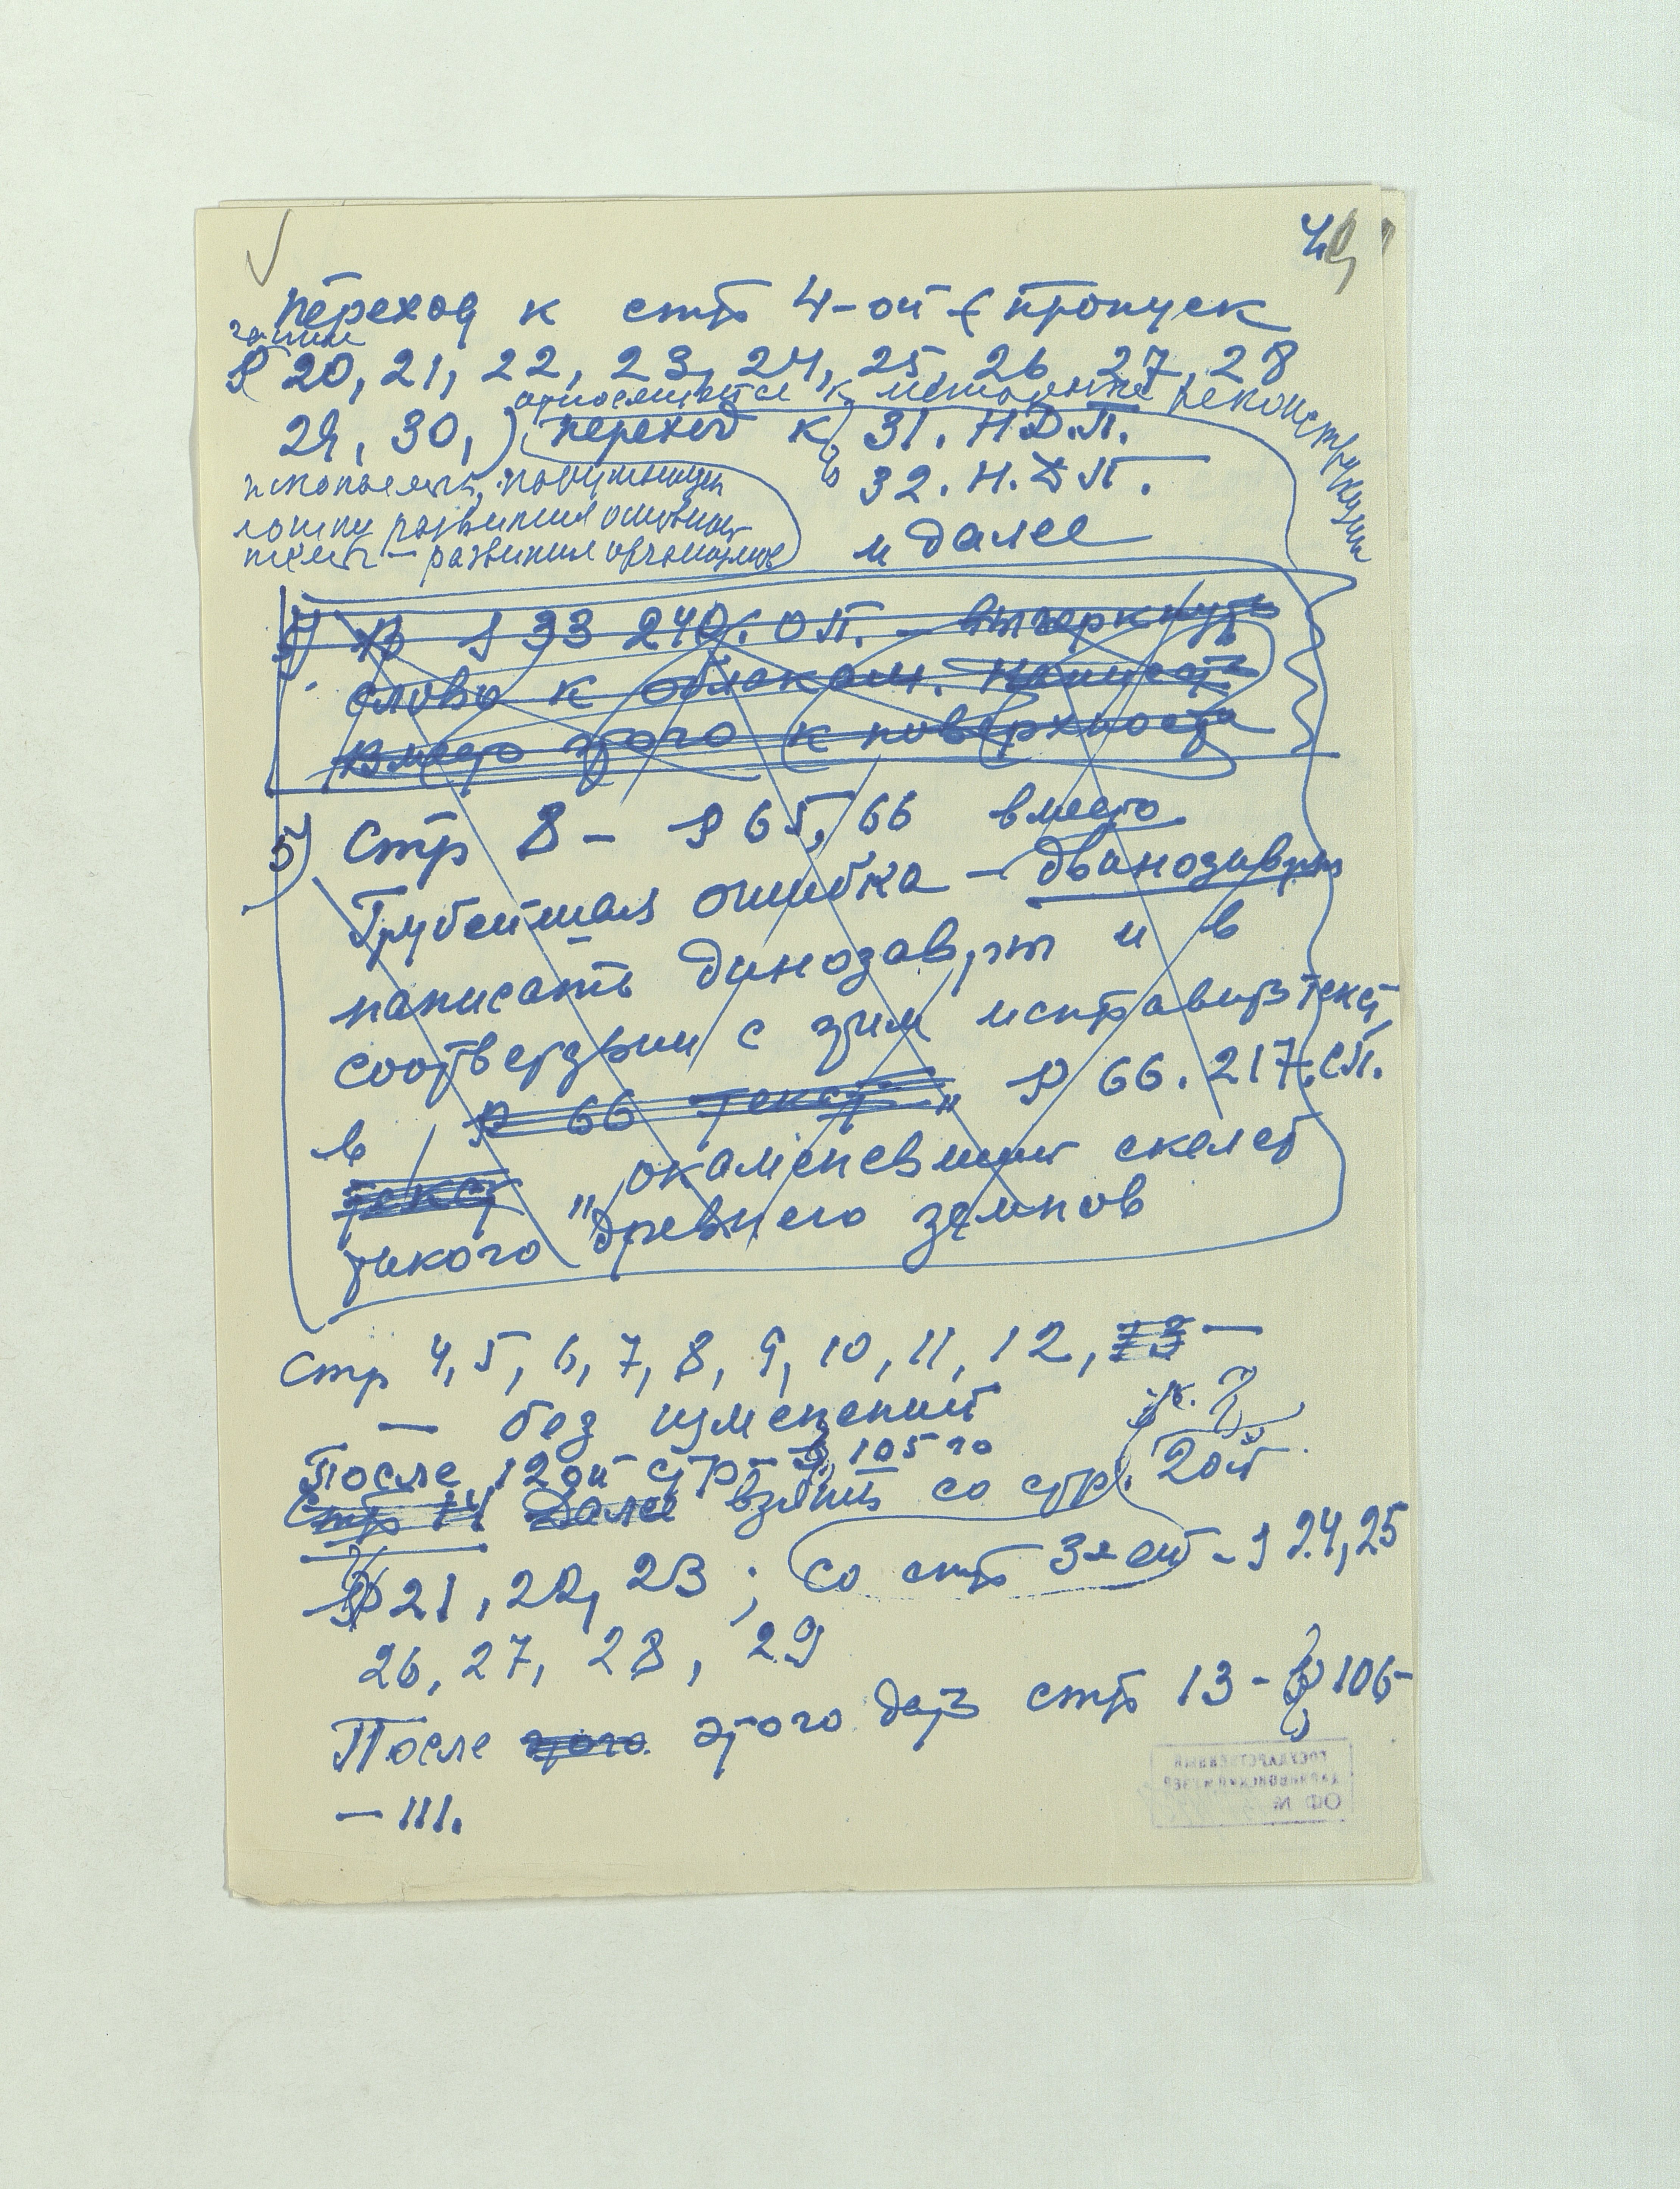 переход к стр 4-ой (пропуск
§ 20, 21, 22, 23, 24, 25, 26, 27, 28
относящиеся к методике реконструкции
29, 30,) переход к 31. Н.Д.П.
32. Н.Д.П.
и далее
развития основной
развития организмов
4) В § 33 240. ОП. – вычеркнуть
слово к облакам. Написать
вместо этого к поверхности
5) Стр 8 – § 65, 66 вместо
Грубейшая ошибка – дванозавры
написать динозавры и в
соответствии с этим исправить текст
§ 66 текст " § 66. 217. СП.
в
текст "окаменевший скелет
такого "древнего земнов
Стр 4, 5, 6, 7, 8, 9, 10, 11, 12, 13 —
— без изменений
После 12ой стр – § 105 го
Стр 14 Далее взять со стр. 20й
§ 21, 22, 23; со стр 3-ей – § 24, 25
26, 27, 28, 29
После этого этого дать стр 13 - § 106-
— 111.
ГОСУДАРСТВЕННЫЙ
ДАРВИНОВСКИЙ МУЗЕЙ
ОФ №